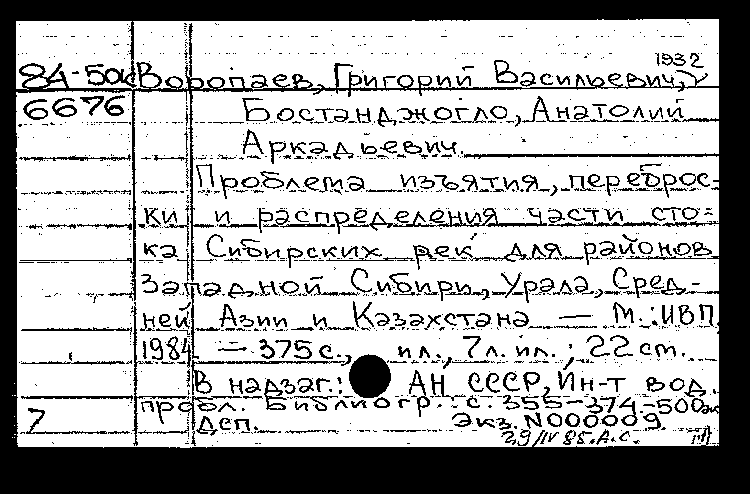 1932
84-50к Воропаев, Григорий Васильевич,
6676 Бостанджогло, Анатолий
Аркадьевич.
Проблема изъятия, переброс-
ки и распределения части сто-
ка Сибирских рек для районов
Западной Сибири, Урала, Сред-
ней Азии и Казахстана — М.: ИВП,
1984. — 375 с., ил., 7 л. ил.; 22 см.
В надзаг.: АН СССР, Ин-т вод.
пробл. Библиогр.: с. 355-374-500 экз
7 Дсп. Экз. N000009.
29/IV 85. А.С.